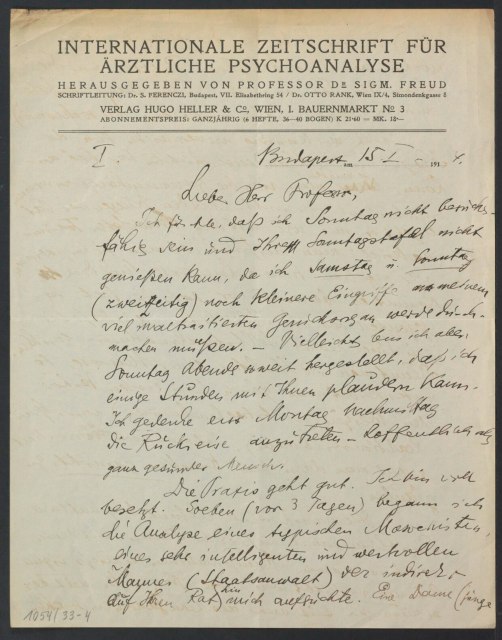 INTERNATIONALE ZEITSCHRIFT FÜR
ÄRZTLICHE PSYCHOANALYSE
HERAUSGEGEBEN VON PROFESSOR DR SIGM. FREUD
SCHRIFTLEITUNG: Dr. S. FERENCZI, Budapest, VII. Elisabethring 54 / Dr. OTTO RANK, Wien IX/4, Simondenkgasse 8
VERLAG HUGO HELLER & Co, WIEN, I. BAUERNMARKT No 3
ABONNEMENTSPREIS: GANZJÄHRIG (6 HEFTE, 36—40 BOGEN) K 21·60 = MK. 18·—
I.
Budapest, am 15 I – 1914.
Lieber Herr Professor,
Ich fürchte, daß ich Sonntag nicht besuchs-
fähig sein und Ihrer Sonntagstafel nicht
genießen kann, da ich Samstag u. Sonntag
(zweizeitig) noch kleinere Eingriffe an meinem
viel malträtierten Geruchsorgan werde durch-
machen müßen. – Vielleicht bin ich aber
Sonntag Abends soweit hergestellt, daß ich
einige Stunden mit Ihnen plaudern kann.
Ich gedenke erst Montag Nachmittag
die Rückreise anzutreten – hoffentlich als
ganz gesunder Mensch.
Die Praxis geht gut. Ich bin voll
besetzt. Soeben (vor 3 Tagen) begann ich
die Analyse eines typischen
eines sehr intelligenten und wertvollen
Mannes (Staatsanwalt) der indirekt
auf Ihren Rat hin mich aufsuchte. Eine Dame (junge
1054/33-4